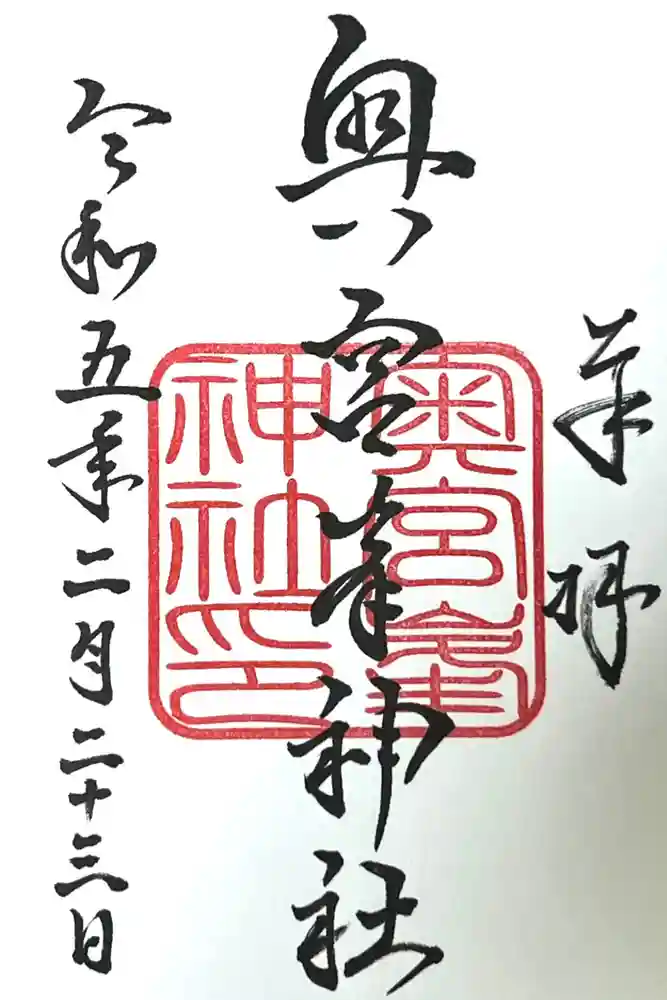 奉拝
奥宮峯神社
奥宮峯
神社印
令和五年二月二十三日